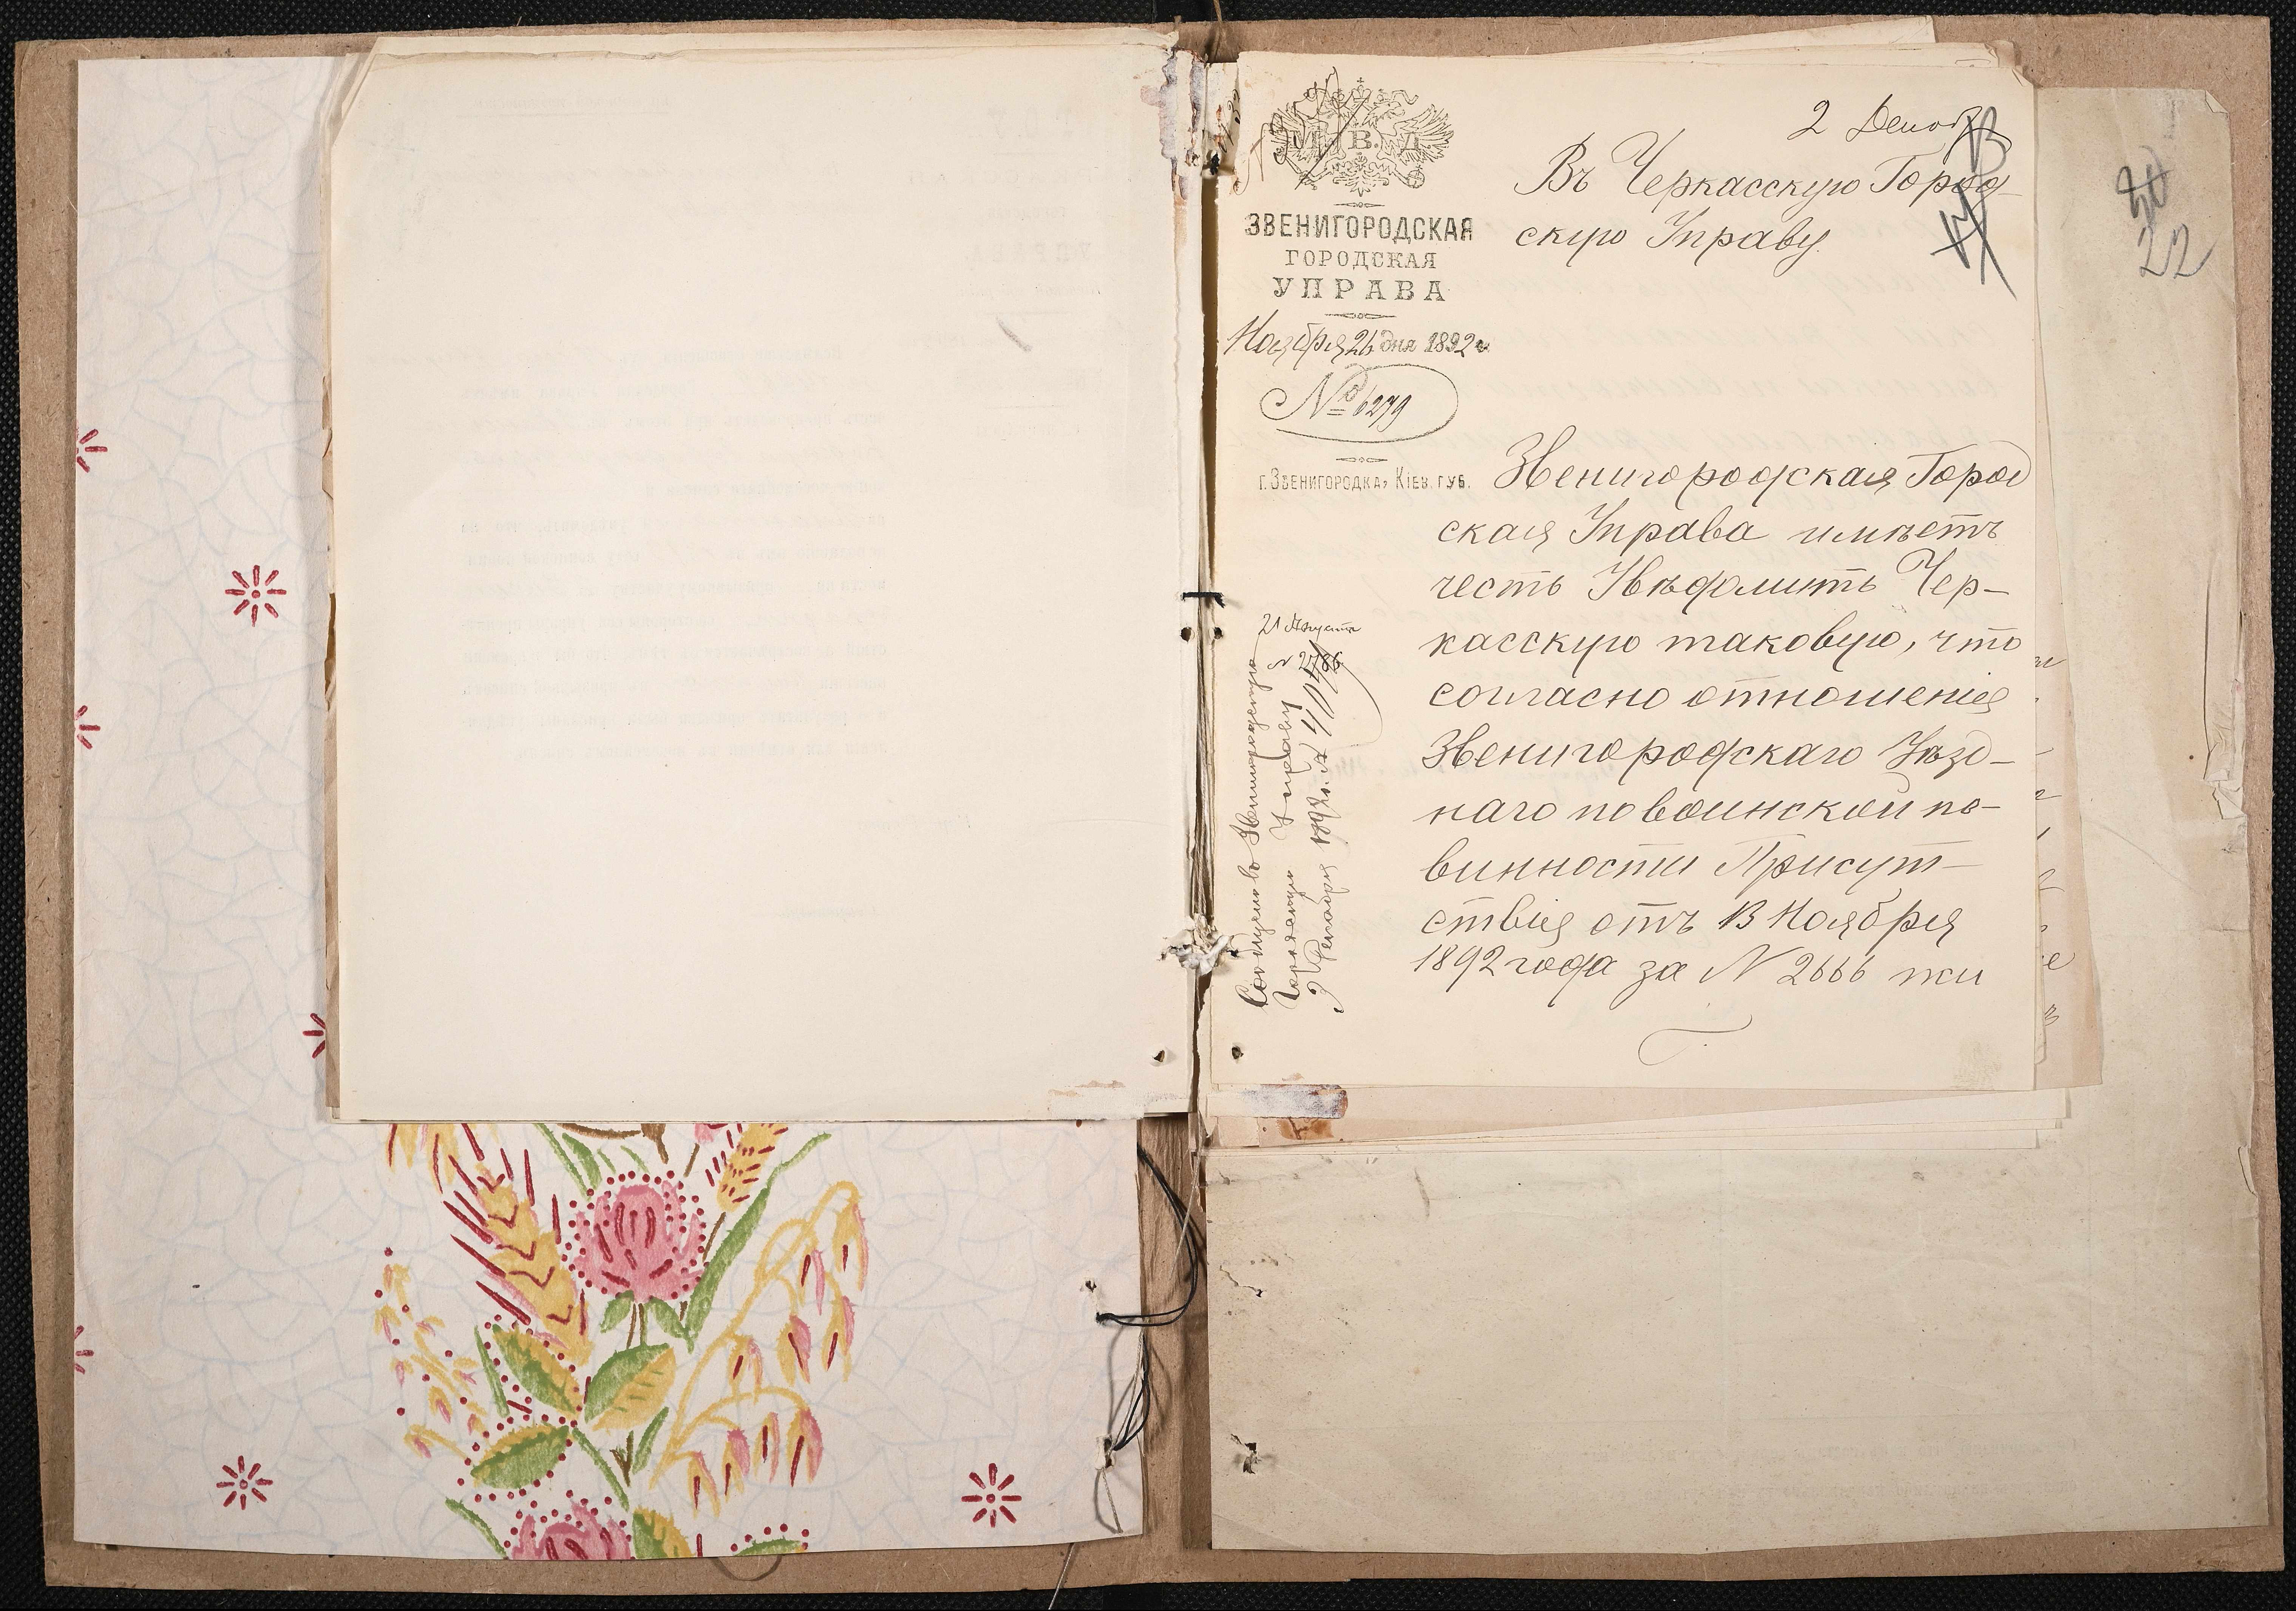 2 Декабр
М. В. Д.
ЗВЕНИГОРОДСКАЯ
ГОРОДСКАЯ
УПРАВА
Ноября 26 дня 1892 г.
№ 6279
г. Звенигородка, Кіев. губ.
Въ Черкасскую Город-
скую Управу.
22
Звенигородская Город
ская Управа имѣетъ
честь Увѣдомить Чер-
касскую таковую, что
согласно отношенія
Звенигородскаго Уѣзд-
наго по воинской по-
винности Присут-
ствія отъ 13 Ноября
1892 года за N 2666 жи
21 Августа
N 2786
Сообщено въ Звенигородскую
Городскую Управу
3 Декабря 1892 г. N